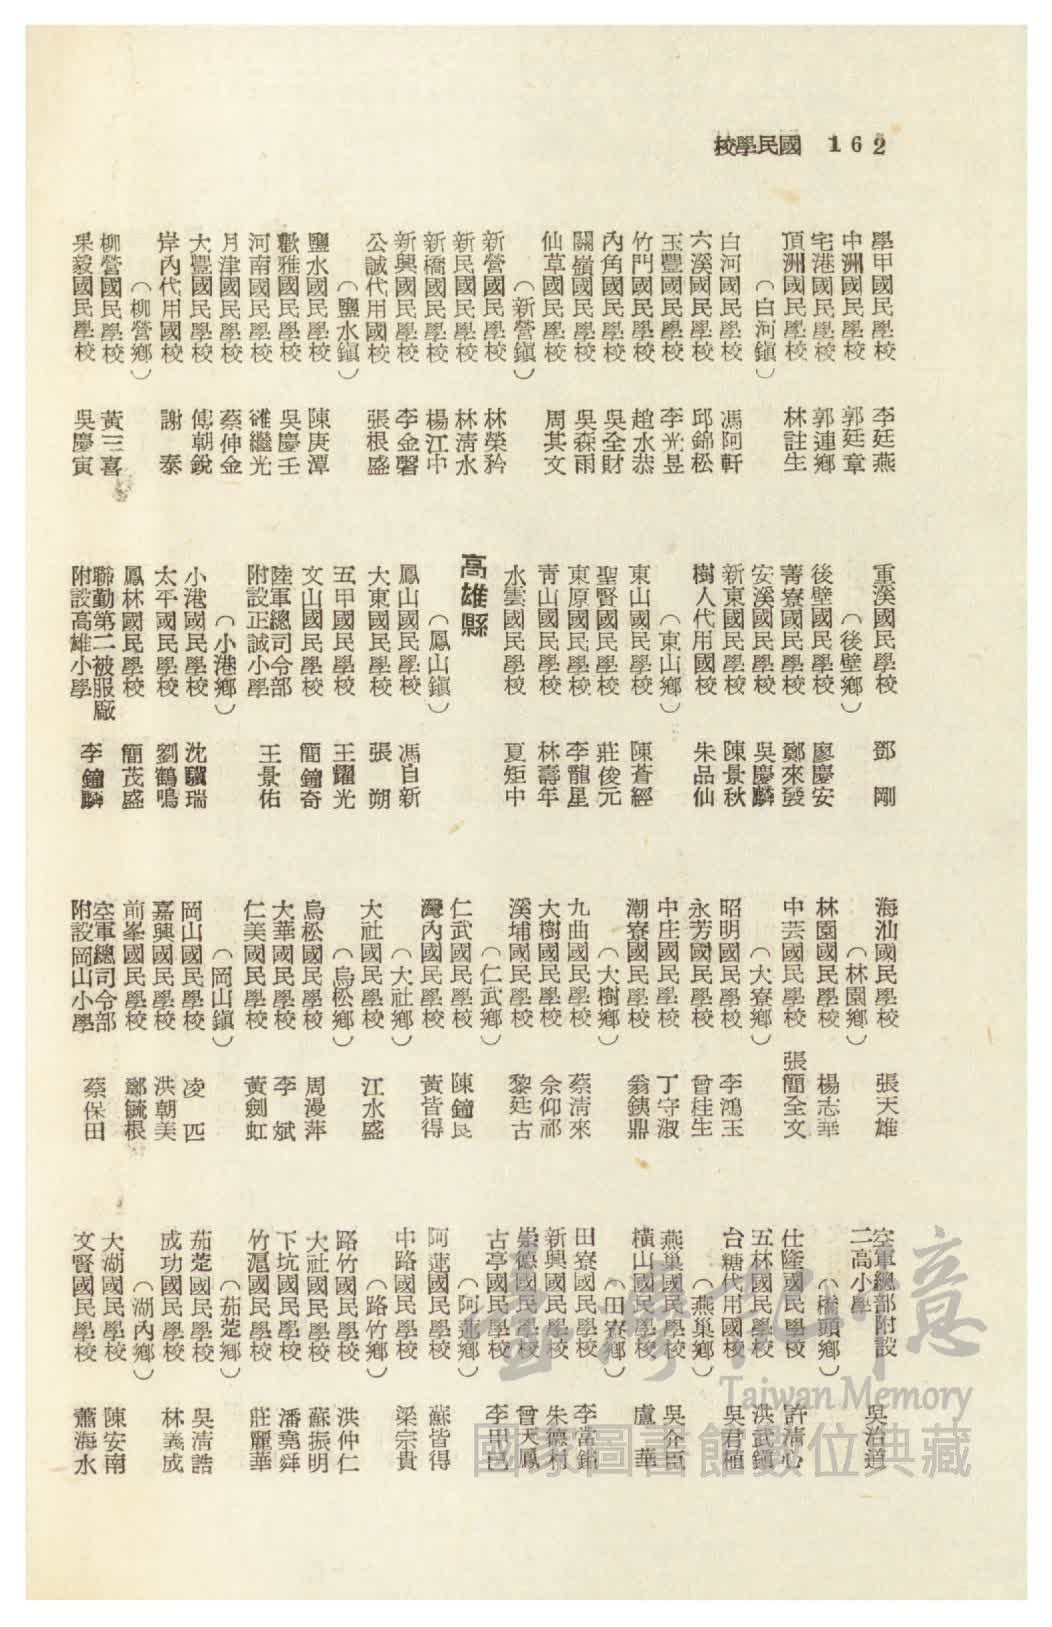 162 國民學校
學甲國民學校 李廷燕
中洲國民學校 郭廷章
宅港國民學校 郭連鄉
頂洲國民學校 林註生
（白河鎮）
白河國民學校 馮阿軒
六溪國民學校 邱錦松
玉豐國民學校 李光昱
竹門國民學校 趙水恭
內角國民學校 吳全財
關嶺國民學校 吳森雨
仙草國民學校 周其文
（新營鎮）
新營國民學校 林榮矜
新民國民學校 林清水
新橋國民學校 楊江中
新興國民學校 李金磬
公誠代用國校 張根盛
（鹽水鎮）
鹽水國民學校 陳庚潭
歡雅國民學校 吳慶壬
河南國民學校 繼光
月津國民學校 蔡仲金
大豐國民學校 傅朝銳
岸內代用國校 謝 泰
（柳營鄉）
柳營國民學校 黃三喜
果毅國民學校 吳慶寅
重溪國民學校 鄧 剛
（後壁鄉）
後壁國民學校 廖慶安
菁寮國民學校 鄭來發
安溪國民學校 吳慶麟
新東國民學校 陳景秋
樹人代用國校 朱品仙
（東山鄉）
東山國民學校 陳蒼經
聖賢國民學校 莊俊元
東原國民學校 李龍星
青山國民學校 林壽年
水雲國民學校 夏矩中
高雄縣
（鳳山鎮）
鳳山國民學校 馮自新
大東國民學校 張 朔
五甲國民學校 王耀光
文山國民學校 簡鐘奇
陸軍總司令部
附設正誠小學 王景佑
（小港鄉）
小港國民學校 沈驥瑞
太平國民學校 劉鶴鳴
鳳林國民學校 簡茂盛
聯勤第二被服廠
附設高雄小學 李鐘麟
海汕國民學校 張天雄
（林園鄉）
林園國民學校 楊志華
中芸國民學校 張簡全文
（大寮鄉）
昭明國民學校 李鴻玉
永芳國民學校 曾桂生
中庄國民學校 丁守淑
潮寮國民學校 翁銕鼎
（大樹鄉）
九曲國民學校 蔡清來
大樹國民學校 余仰祁
溪埔國民學校 黎廷古
（仁武鄉）
仁武國民學校 陳鐘民
灣內國民學校 黃皆得
（大社鄉）
大社國民學校 江水盛
（鳥松鄉）
鳥松國民學校 周漫萍
大華國民學校 李 斌
仁美國民學校 黃劍虹
（岡山鎮）
岡山國民學校 凌 匹
嘉興國民學校 洪朝美
前峯國民學校 鄭毓根
空軍總司令部
附設岡山小學 蔡保田
空軍總部附設
二高小學 吳治道
（橋頭鄉）
仕隆國民學校 許清心
五林國民學校 洪武鎮
台糖代用國校 吳君植
（燕巢鄉）
燕巢國民學校 吳介臣
橫山國民學校 盧 華
（田寮鄉）
田寮國民學校 李當銘
新興國民學校 朱德村
崇德國民學校 曾天鳳
古亭國民學校 李田邑
（阿蓮鄉）
阿蓮國民學校 蘇皆得
中路國民學校 梁宗貴
（路竹鄉）
路竹國民學校 洪仲仁
大社國民學校 蘇振明
下坑國民學校 潘堯舜
竹滬國民學校 莊麗華
（茄萣鄉）
茄萣國民學校 吳清誥
成功國民學校 林義成
（湖內鄉）
大湖國民學校 陳安南
文賢國民學校 蕭海水
臺灣記憶
Taiwan Memory
國家圖書館數位典藏